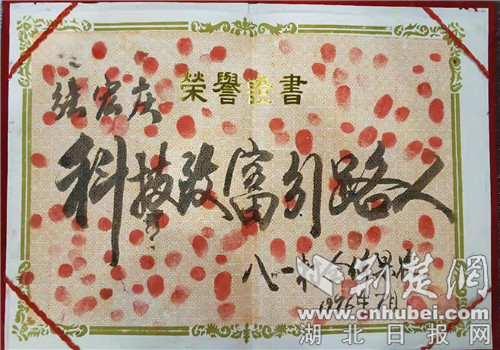 榮譽證書
张宏庆
科技致富引路人
八一村全体
1996年7月
荆楚網
www.cnhubei.com
湖北日报网